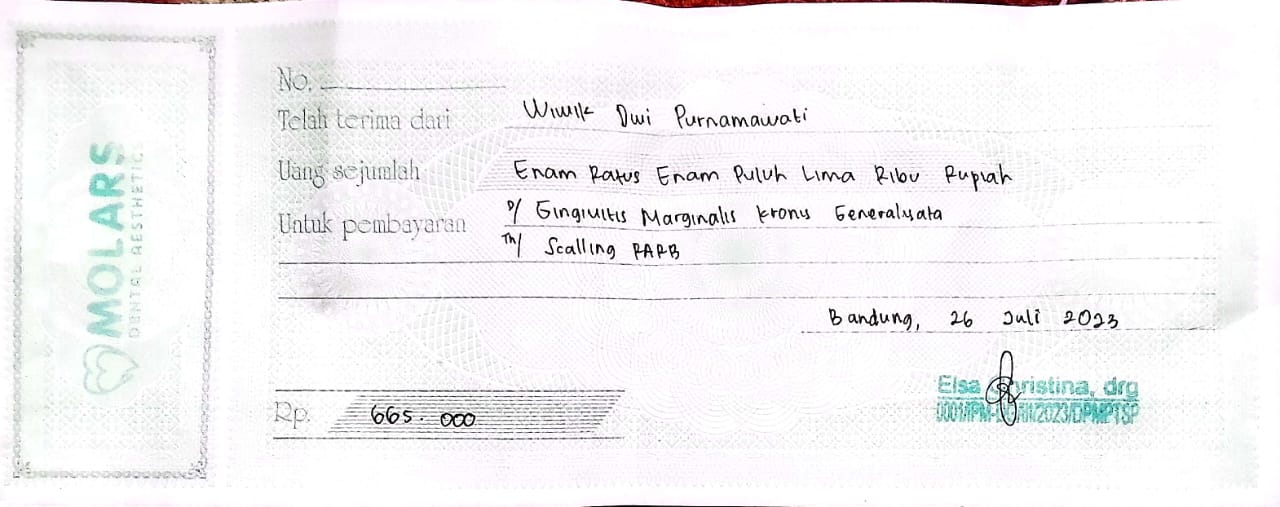 MOLARS
DENTAL AESTHETIC
No.
Telah terima dari Wiwik Dwi Purnamawati
Uang sejumlah Enam Ratus Enam Puluh Lima Ribu Rupiah
Untuk pembayaran D/ Gingivitis Marginalis Kronis Generalyata
Th/ Scalling RARB
Bandung, 26 Juli 2023
Rp. 665.000
Elsa Christina, drg